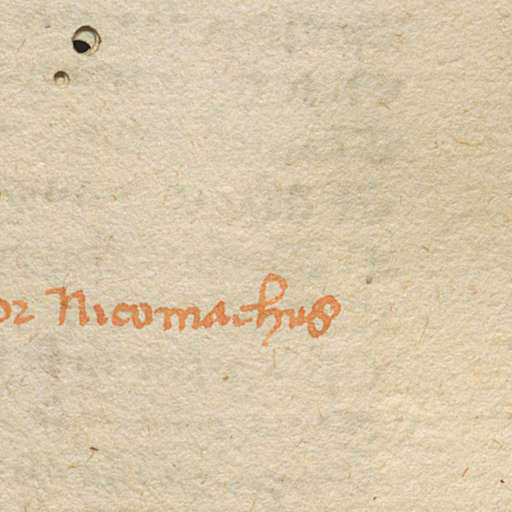 or Nicomachus